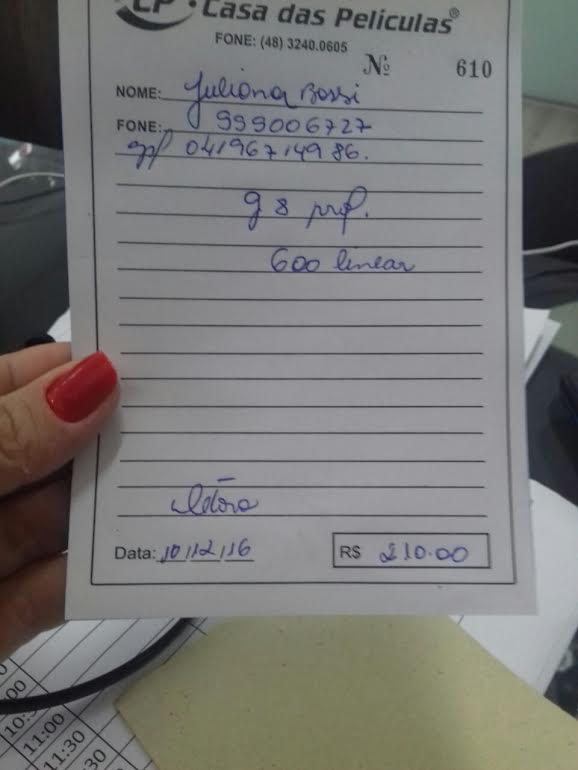 CP Casa das Películas®
FONE: (48) 3240.0605
Nº 610
NOME: Juliana Rossi
FONE: 999006727
cpf 04196714986.
g 8 prof.
600 linear
Data: 10/12/16
R$ 210.00
00
10:30
11:00
11:30
30